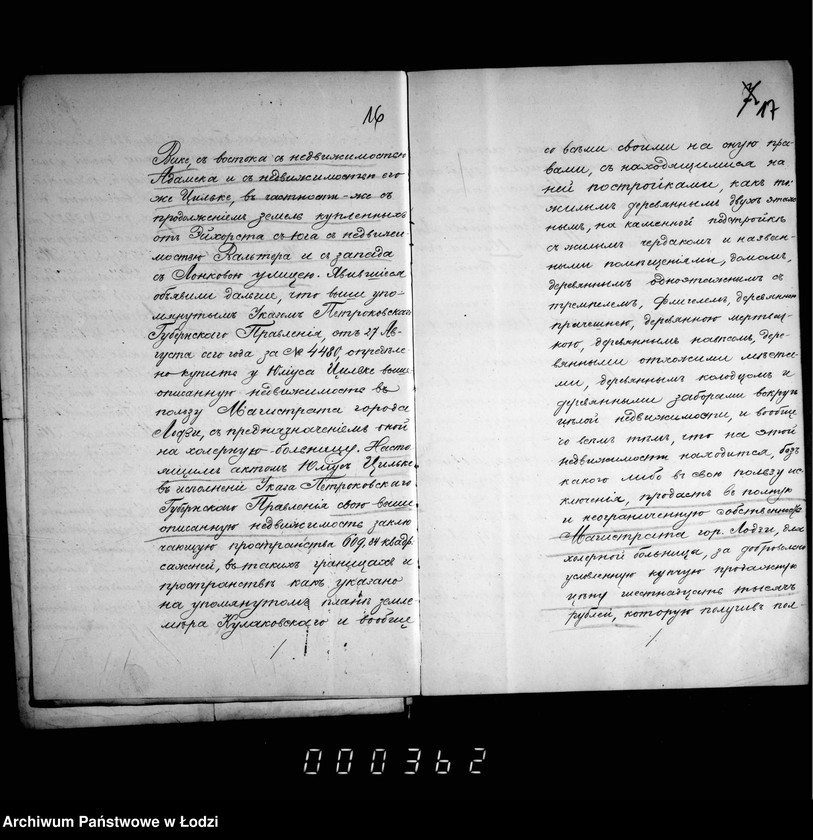 16
Вике, съ востока съ недвижимостью
Адамска и съ недвижимостью его
же Цильке, въ частности-же съ
продолженіемъ земель купленныхъ
отъ Эйхорста съ юга съ недвижи-
мостью Вальтера и съ запада
съ Лонковою улицею. Явившіеся
объявили далѣе, что выше упо-
мянутымъ Указомъ Петроковскаго
Губернскаго Правленія, отъ 27 Ав-
густа сего года за № 4480, опредѣле-
но купить у Юліуса Цильке выше
описанную недвижимость въ
пользу Магистрата города
Лодзи, съ предназначеніемъ оной
на холерную больницу. Насто-
ящимъ актомъ Юліусъ Цильке
въ исполненіи Указа Петроковскаго
Губернскаго Правленія свою выше
описанную недвижимость заклю-
чающую пространства 609,84 квадр.
саженей, въ такихъ границахъ и
пространствѣ какъ указано
на упомянутомъ планѣ земле-
мѣра Кулаковскаго и вообще
17
со всѣми своими на оную пра-
вами, съ находящимися на
ней постройками, какъ то:
жилымъ деревяннымъ двухъ этаж-
нымъ, на каменной подстройкѣ
съ жилымъ чердакомъ и назван-
ными помѣщеніями, домомъ,
деревяннымъ одноэтажнымъ съ
тремпелемъ, флигелемъ, деревянною
прачешнею, деревянною мертвец-
кою, деревяннымъ навѣсомъ, дере-
вянными отхожими мѣста-
ми, деревяннымъ колодцомъ и
деревянными заборами вокругъ
цѣлой недвижимости, и вообще
со всѣмъ тѣмъ, что на этой
недвижимости находится, безъ
какого либо въ свою пользу ис-
ключенія, продастъ въ полную
и неограниченную собственность
Магистрата гор. Лодзи, для
холерной больницы, за добровольно
условленную купчую продажную
цѣну шестнадцать тысячъ
рублей, которую получивъ пол-
000362
Archiwum Państwowe w Łodzi